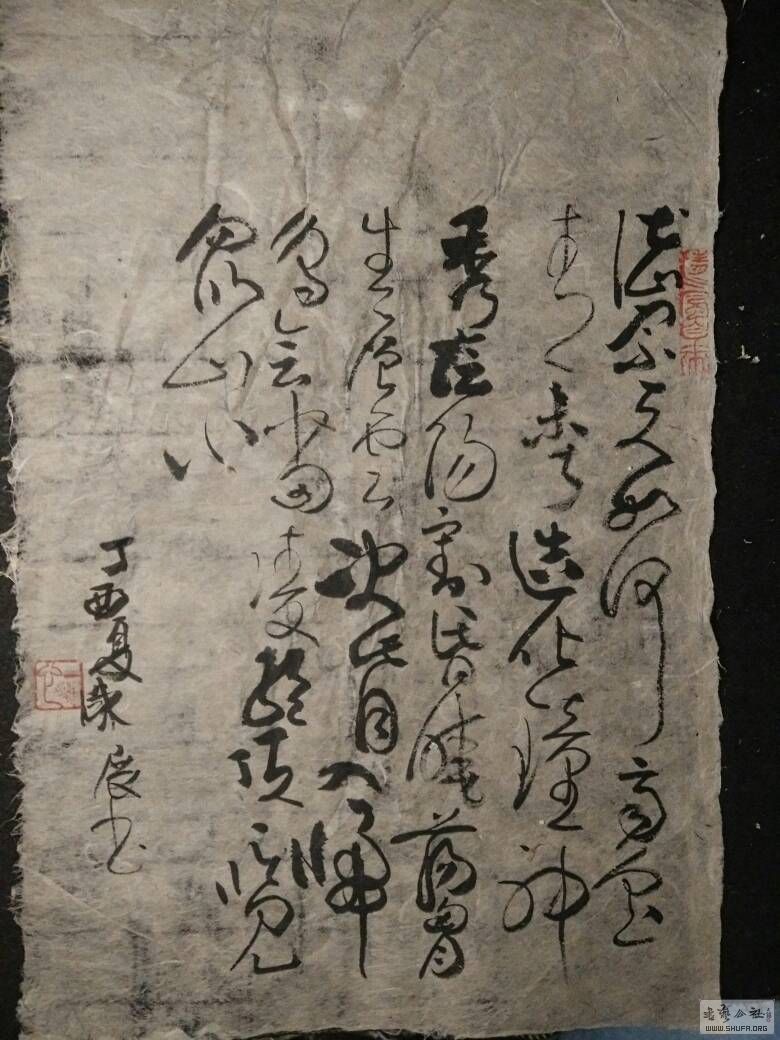 岱宗夫如何齊魯
青未了造化鍾神
秀陰陽割昏曉蕩胸
生層雲決眥入歸
鳥會當凌絕頂一覽
眾山小
丁酉夏
书
書藝公社
WWW.SHUFA.ORG